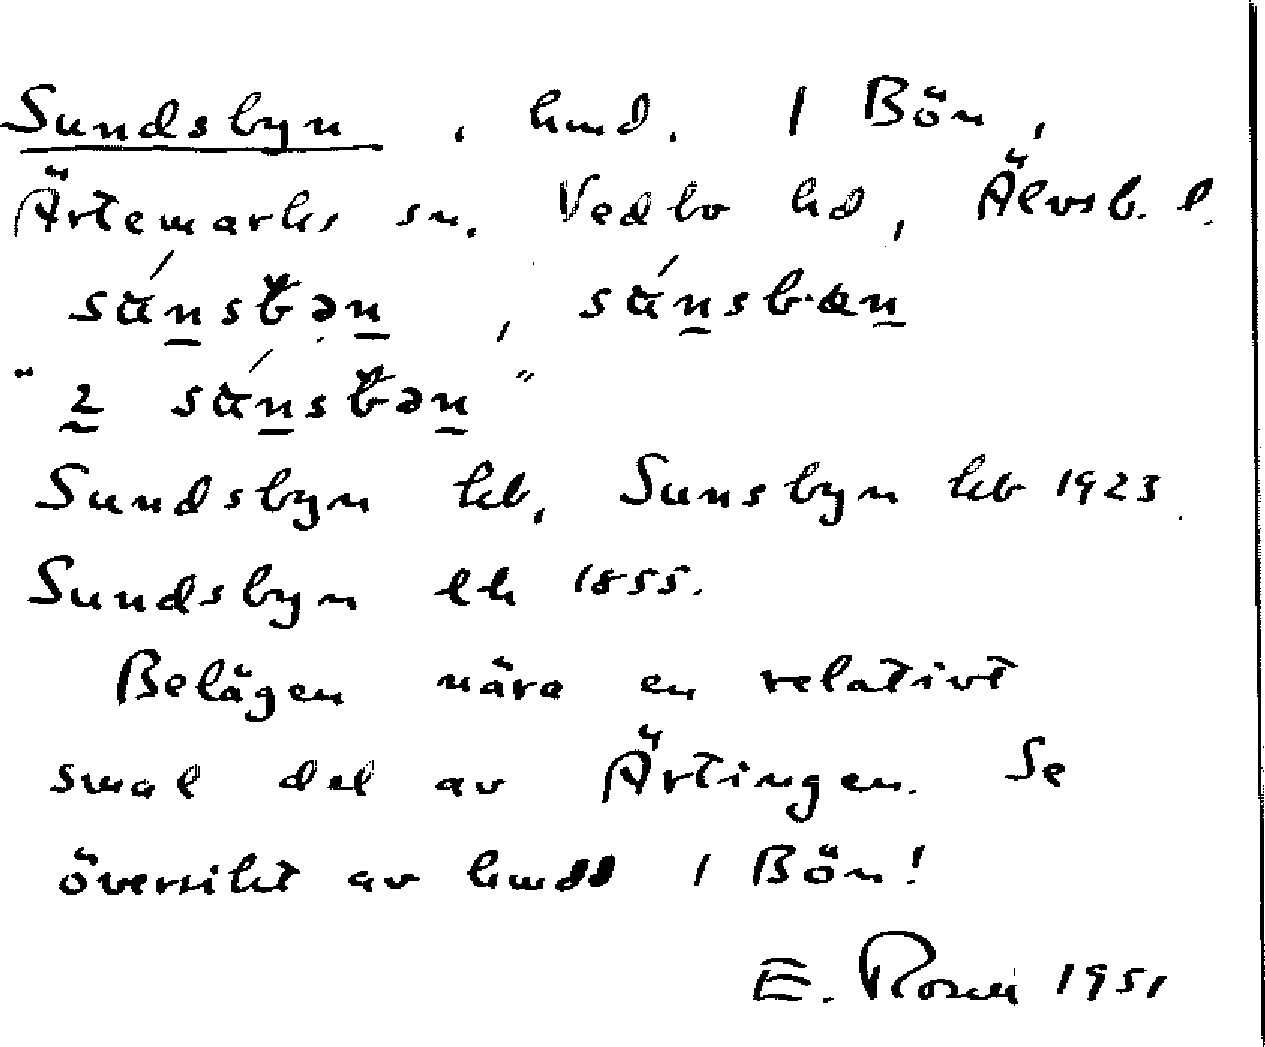 Sundsbyn, hmd. 1 Bön,
Ärtemarks sn. Vedbo hd, Älvsb. l.
Sundsbyn kb, Sunsbyn kb 1923.
Sundsbyn ek 1855.
Belägen nära en relativt
smal del av Ärtingen. Se
översikt av hmdd 1 Bön!
E. Rosell 1951